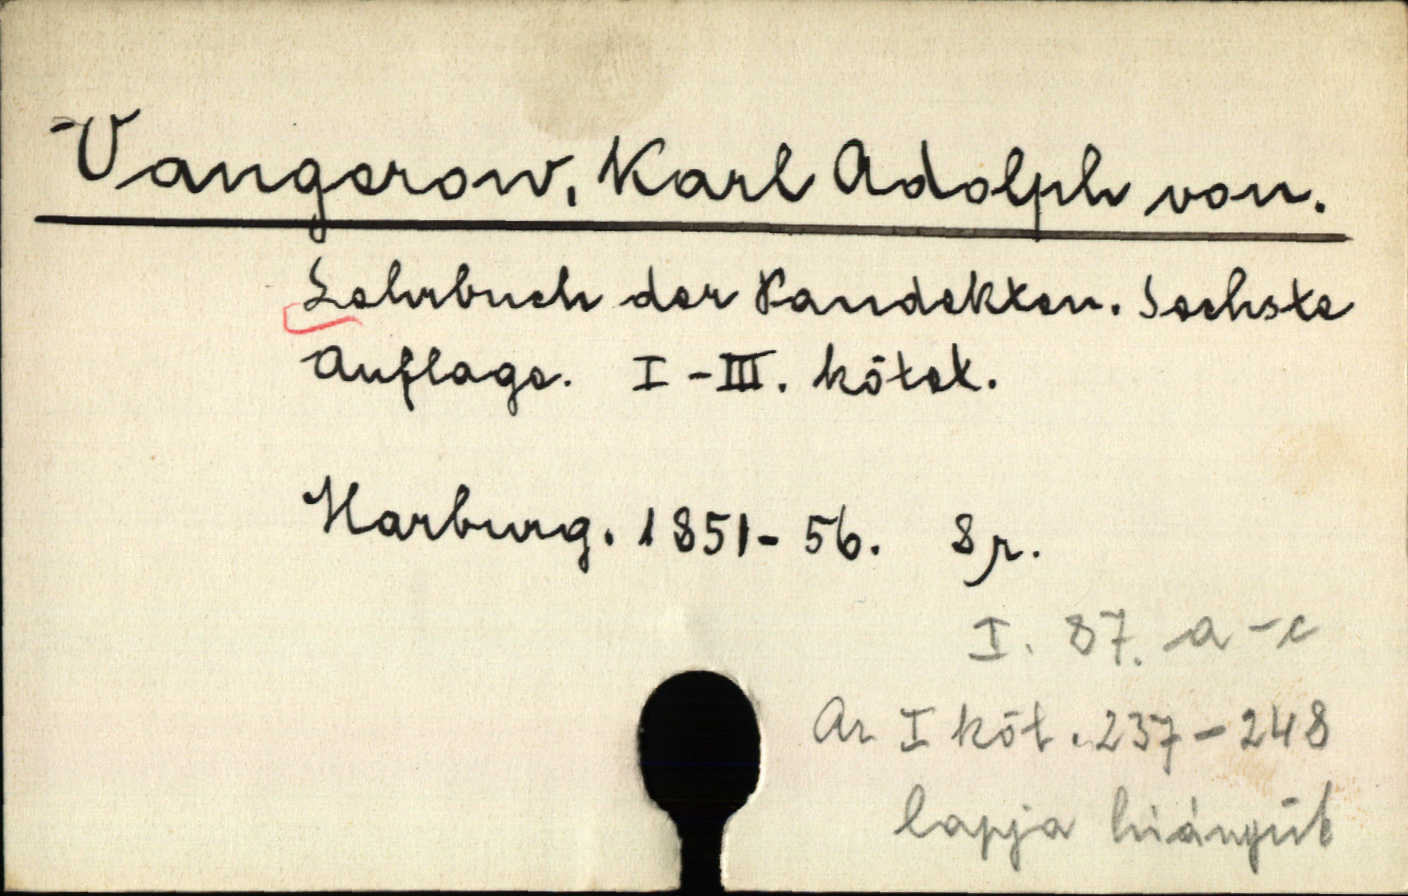 Vangerow, Karl Adolph von.
Lehrbuch der Pandekten. Sechste
Auflage. I-III. kötet.
Marburg. 1851-56. 8r.
I. 87. a-c
Az I köt. 237-248
lapja hiányzik